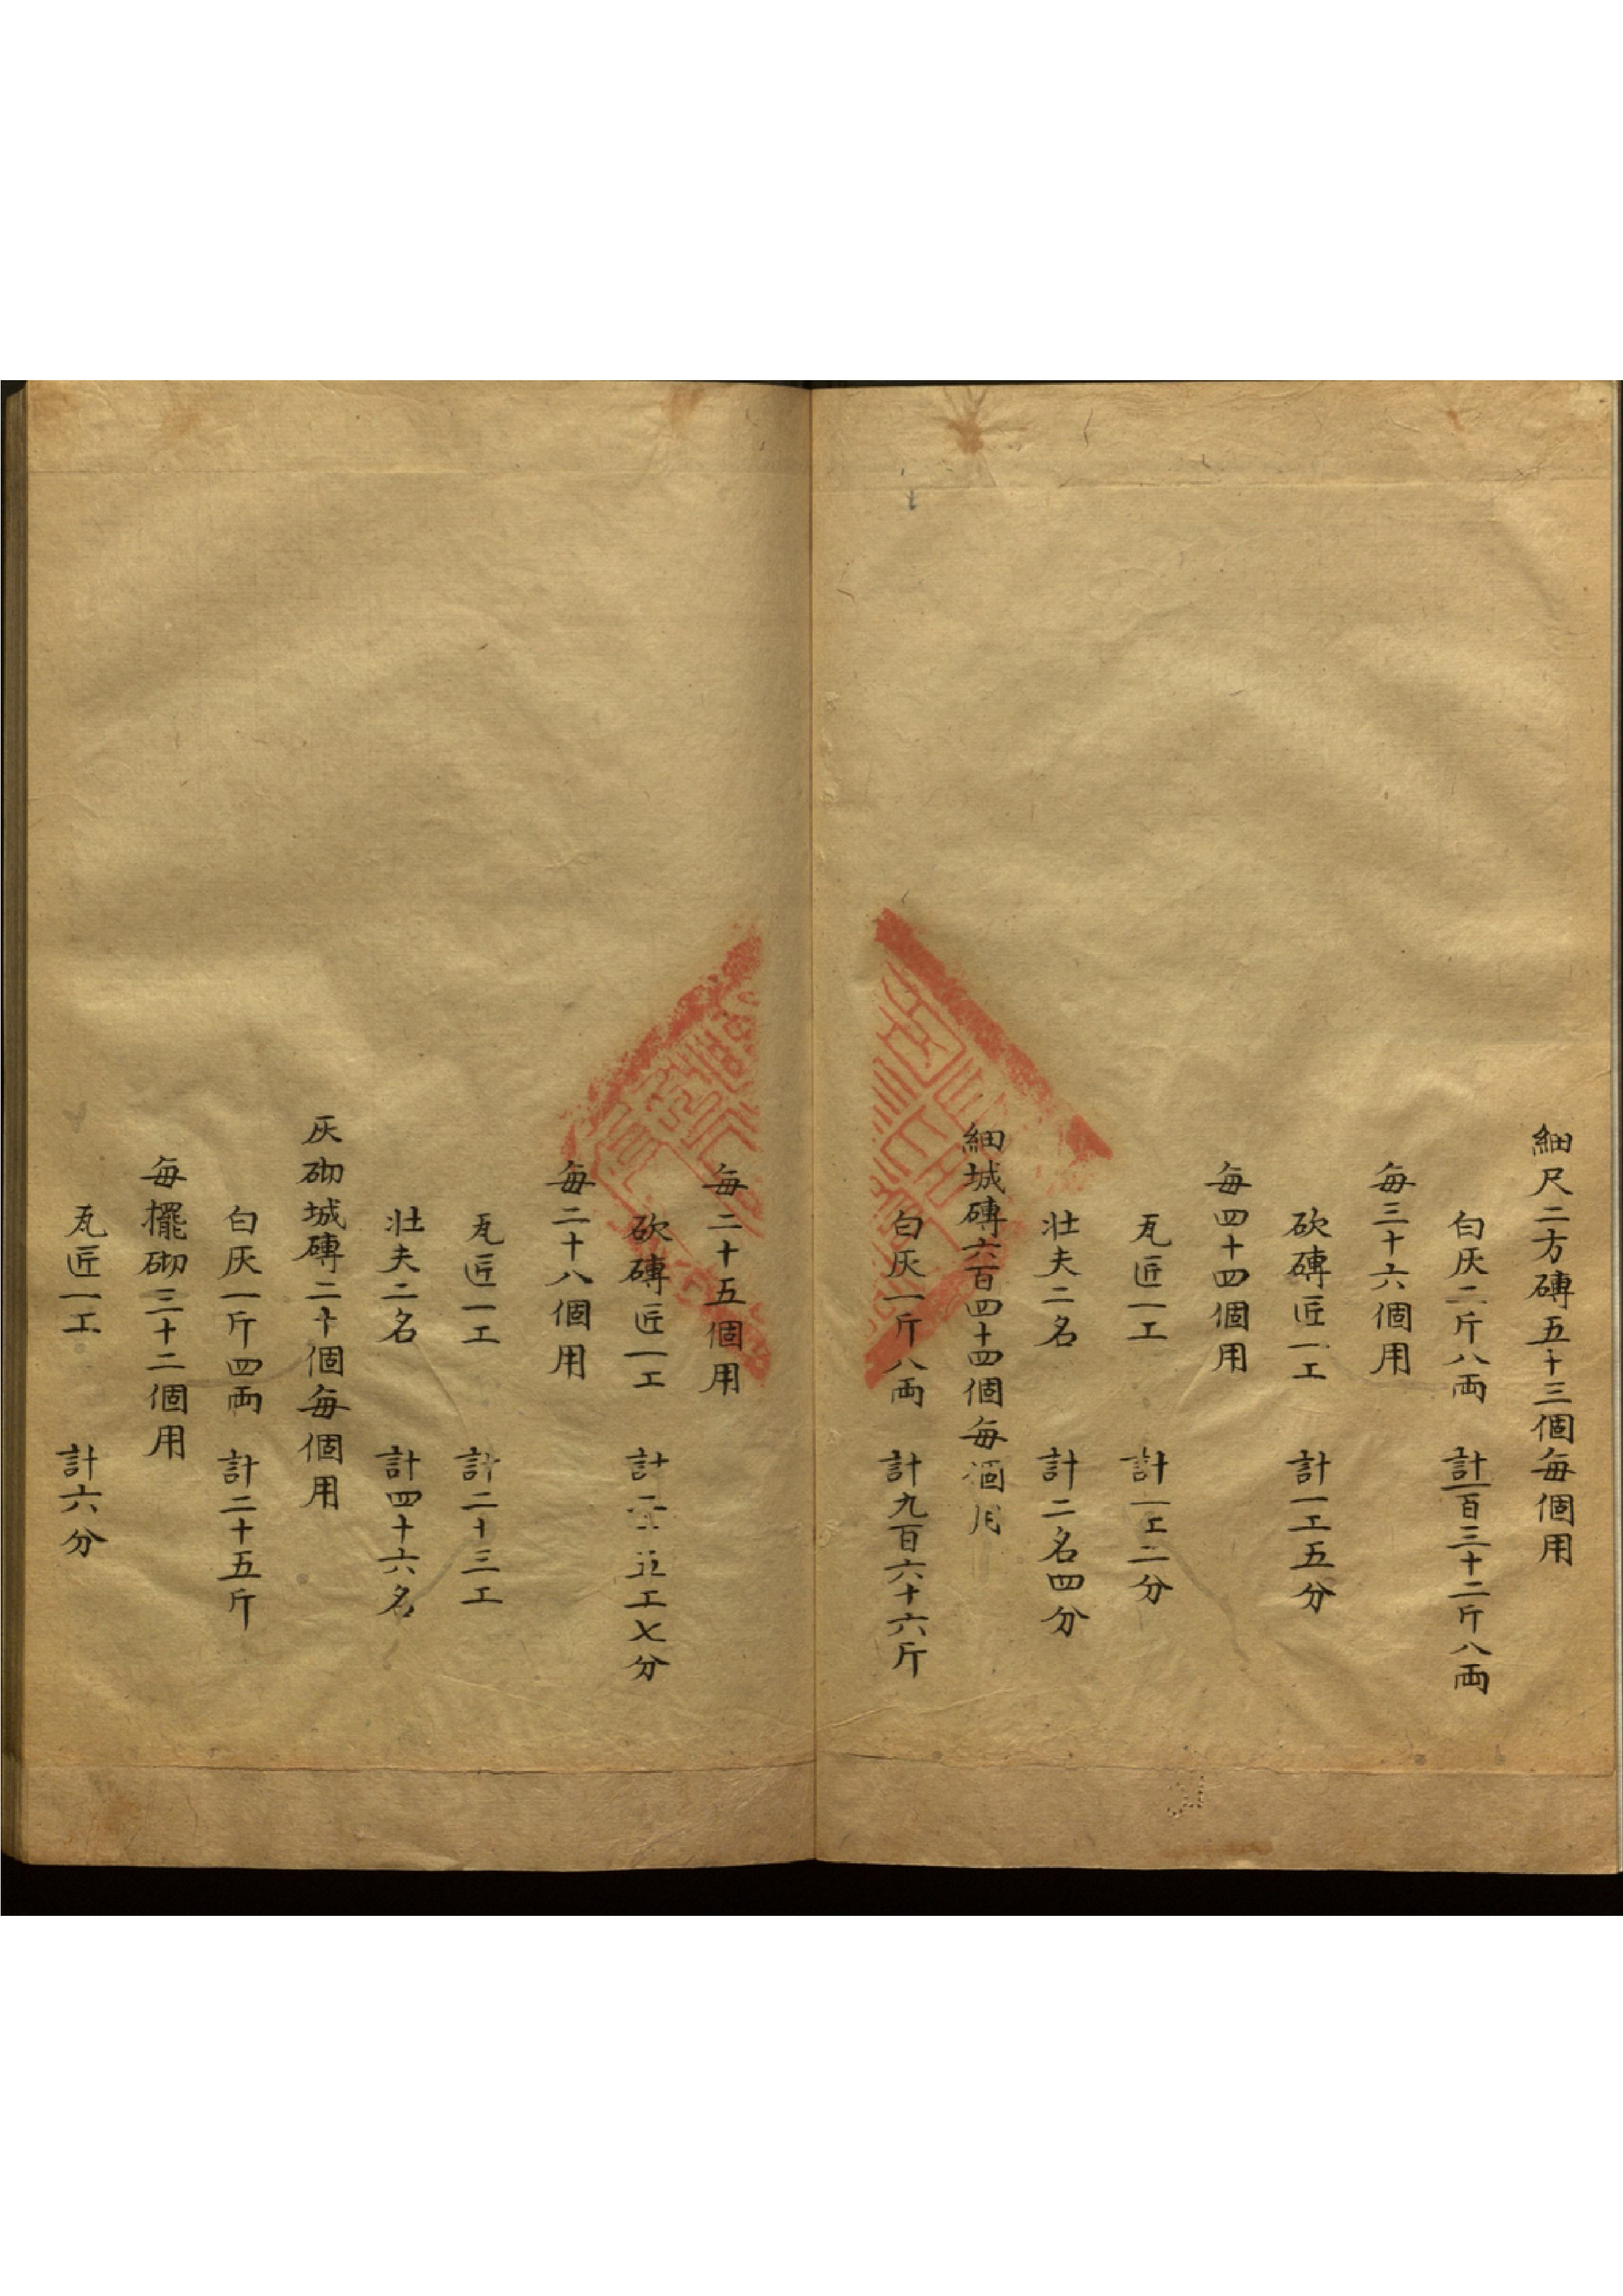 細尺二方磚五十三個每個用
白灰二斤八両　計一百三十二斤八両
每三十六個用
砍磚匠一工　計一工五分
每四十四個用
瓦匠一工　計一工二分
壮夫二名　計二名四分
細城磚六百四十四個每個用
白灰一斤八両　計九百六十六斤
每二十五個用
砍磚匠一工　計二十五工七分
每二十八個用
瓦匠一工　計二十三工
壮夫二名　計四十六名
灰砌城磚二十個每個用
白灰一斤四両　計二十五斤
每擺砌三十二個用
瓦匠一工　計六分